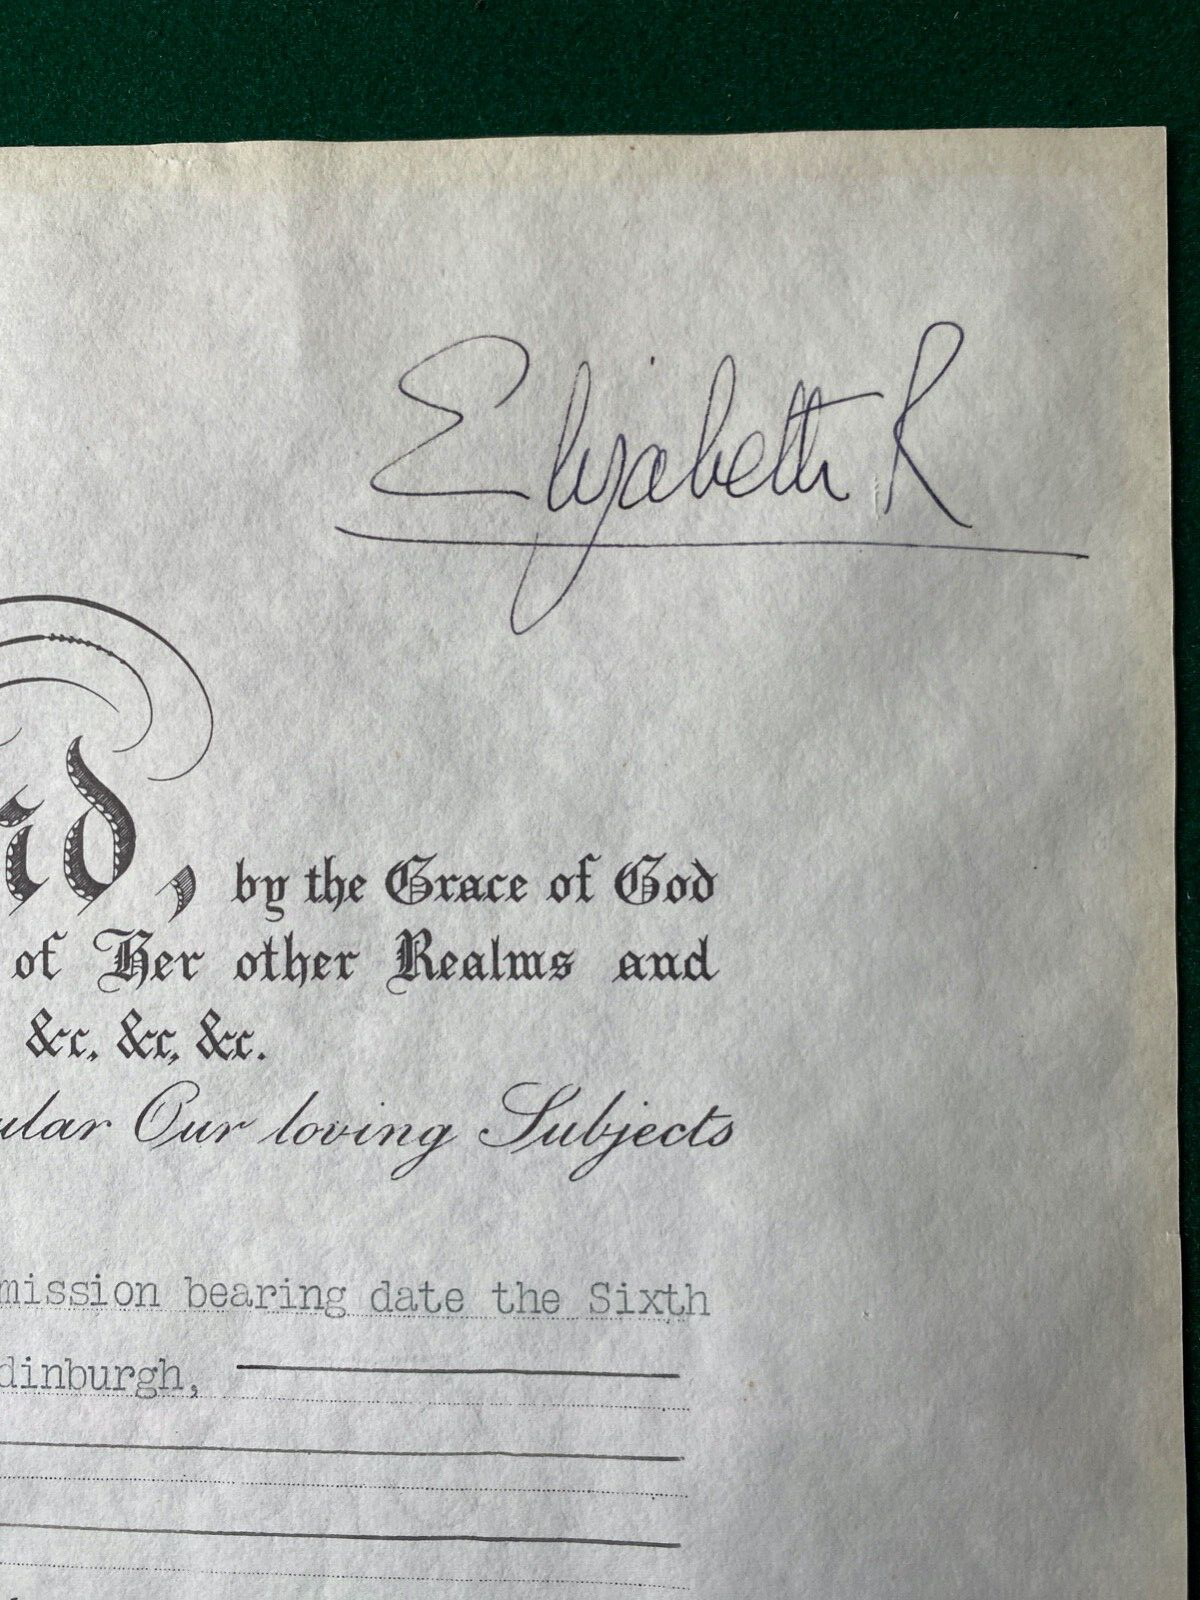 Elizabeth R
, by the Grace of God
of Her other Realms and
&c, &c, &c.
ular Our loving Subjects
mission bearing date the Sixth
dinburgh,